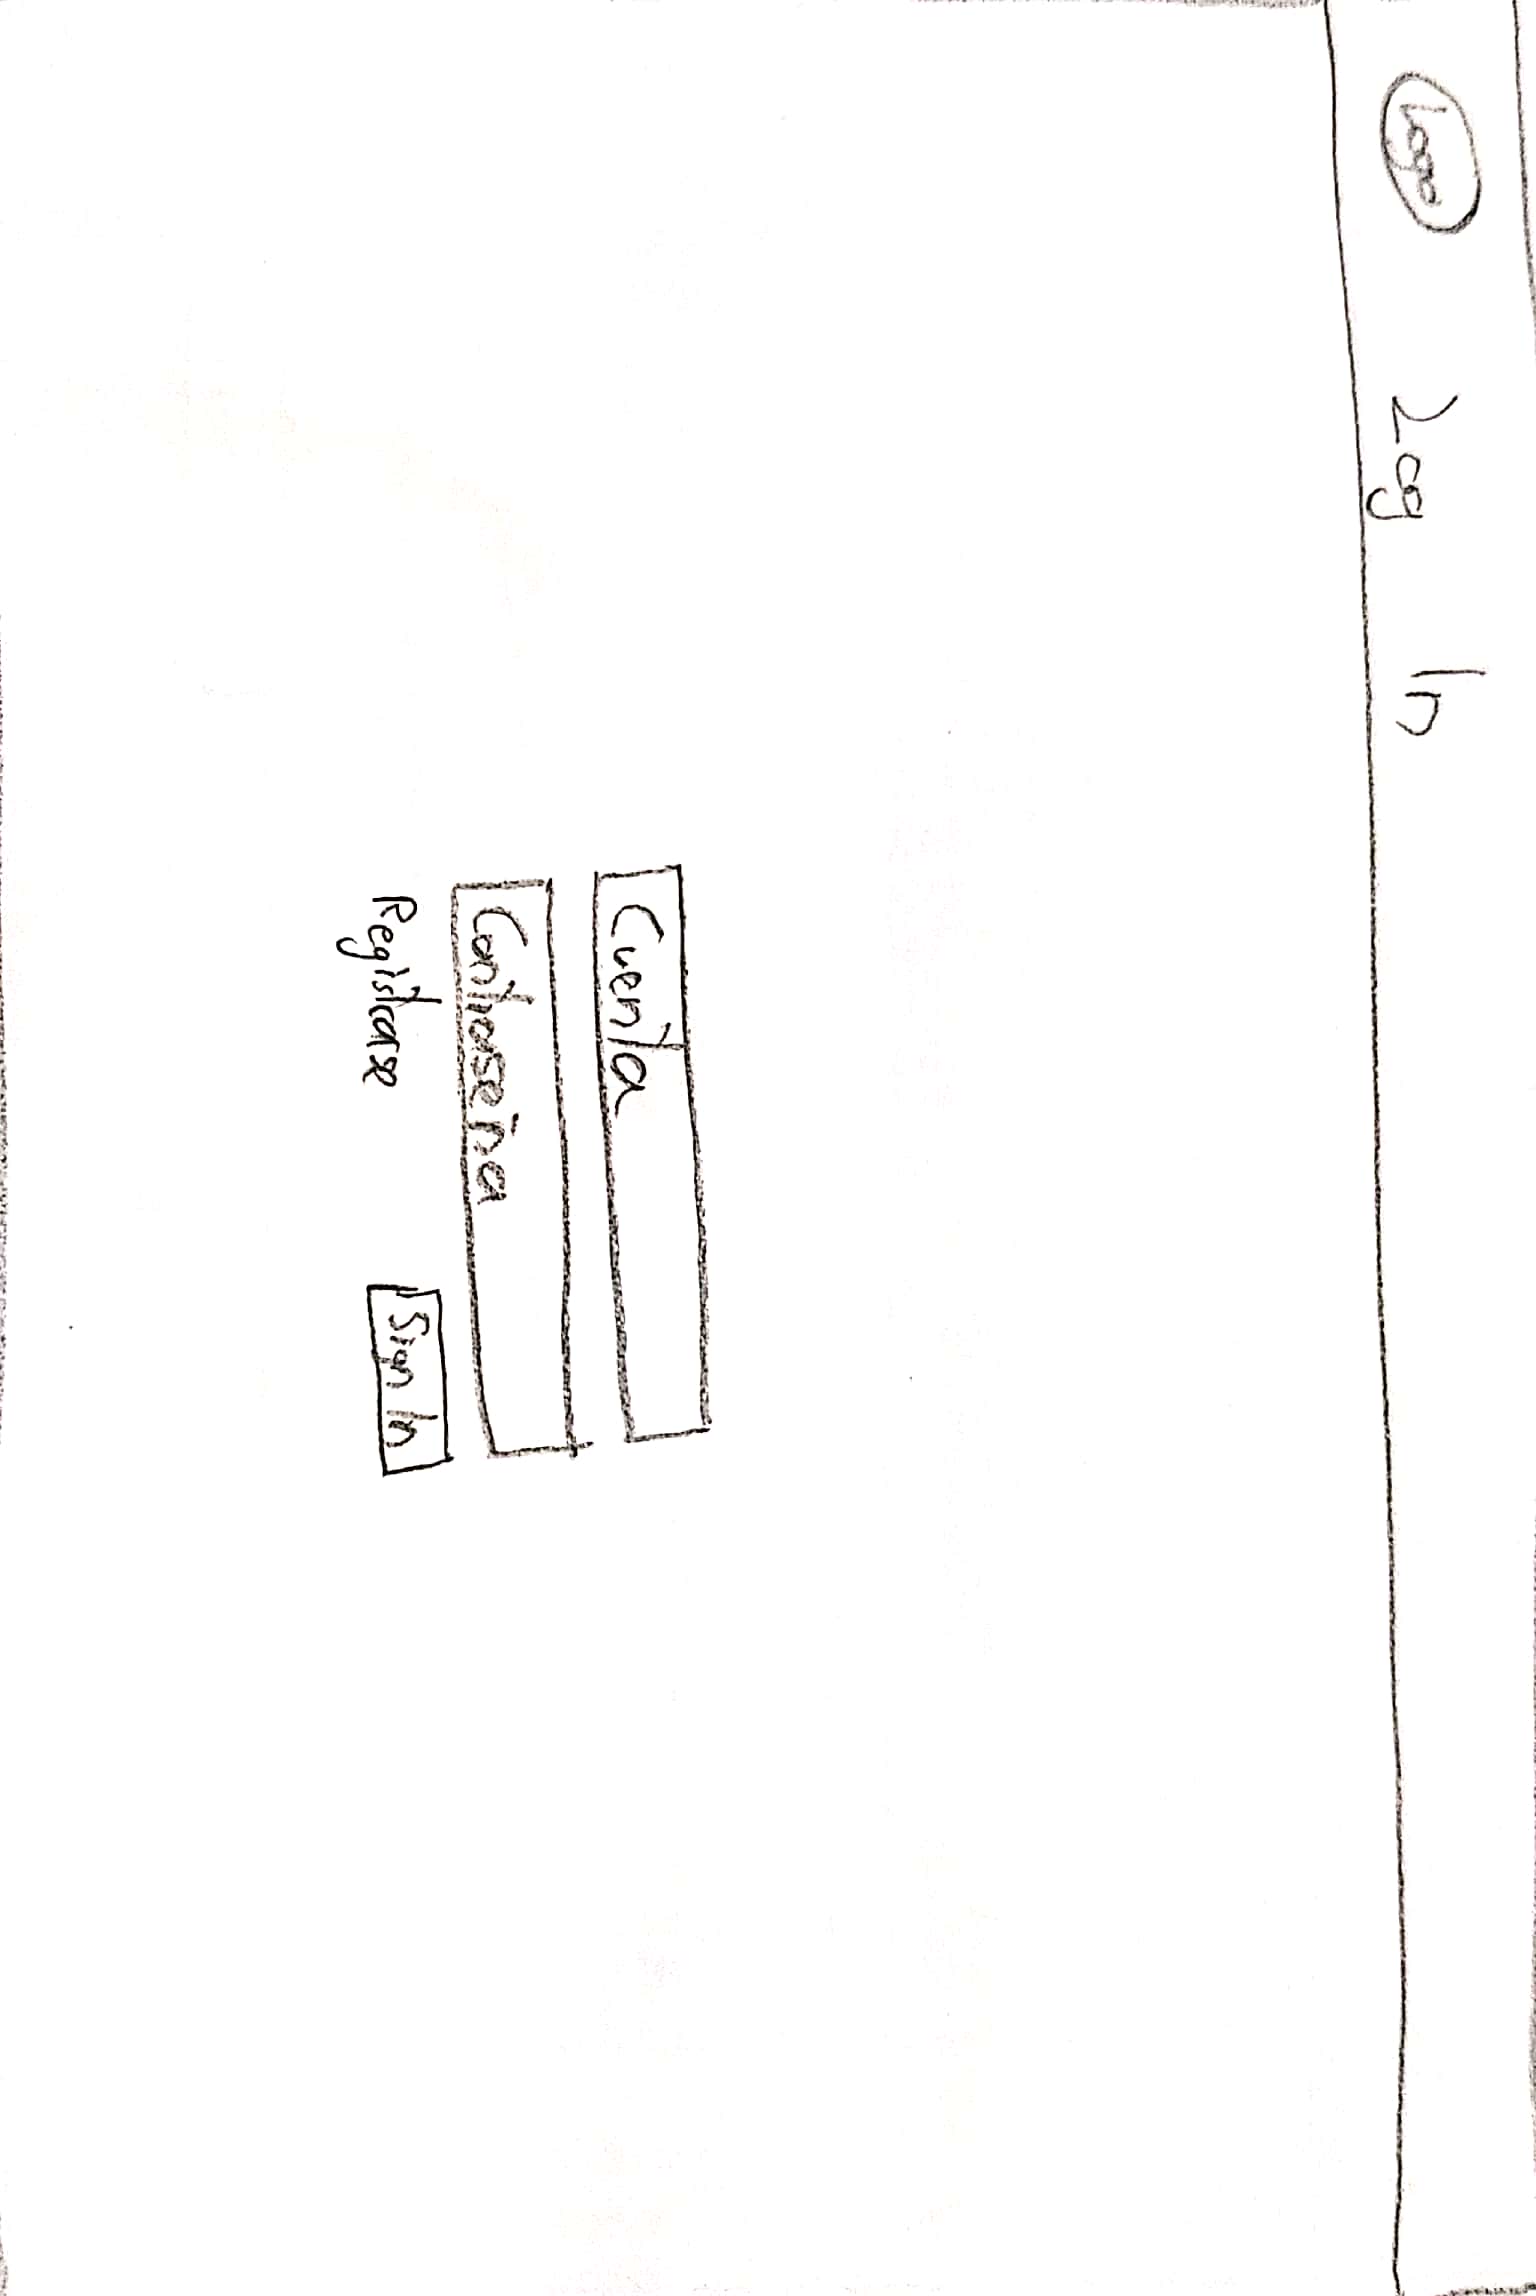 Logo Log In
Cuenta
Contraseña
Registrarse Sign In